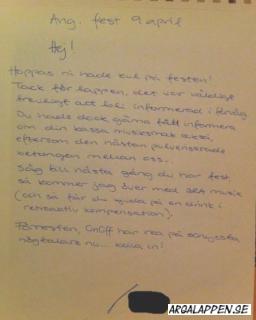 Ang. fest 9 april
Hej!
Hoppas ni hade kul på festen!
Tack för lappen, det var väldigt
trevligt att bli informerad i förväg.
Du hade dock gärna fått informera
om din kassa musiksmak också,
eftersom den nästan pulveriserade
betongen mellan oss..
Säg till nästa gång du har fest
så kommer jag över med rätt musik
(och så får du bjuda på en drink i
retroaktiv kompensation)
Förresten, OnOff har rea på schyssta
högtalare nu... kolla in!
ARGALAPPEN.SE